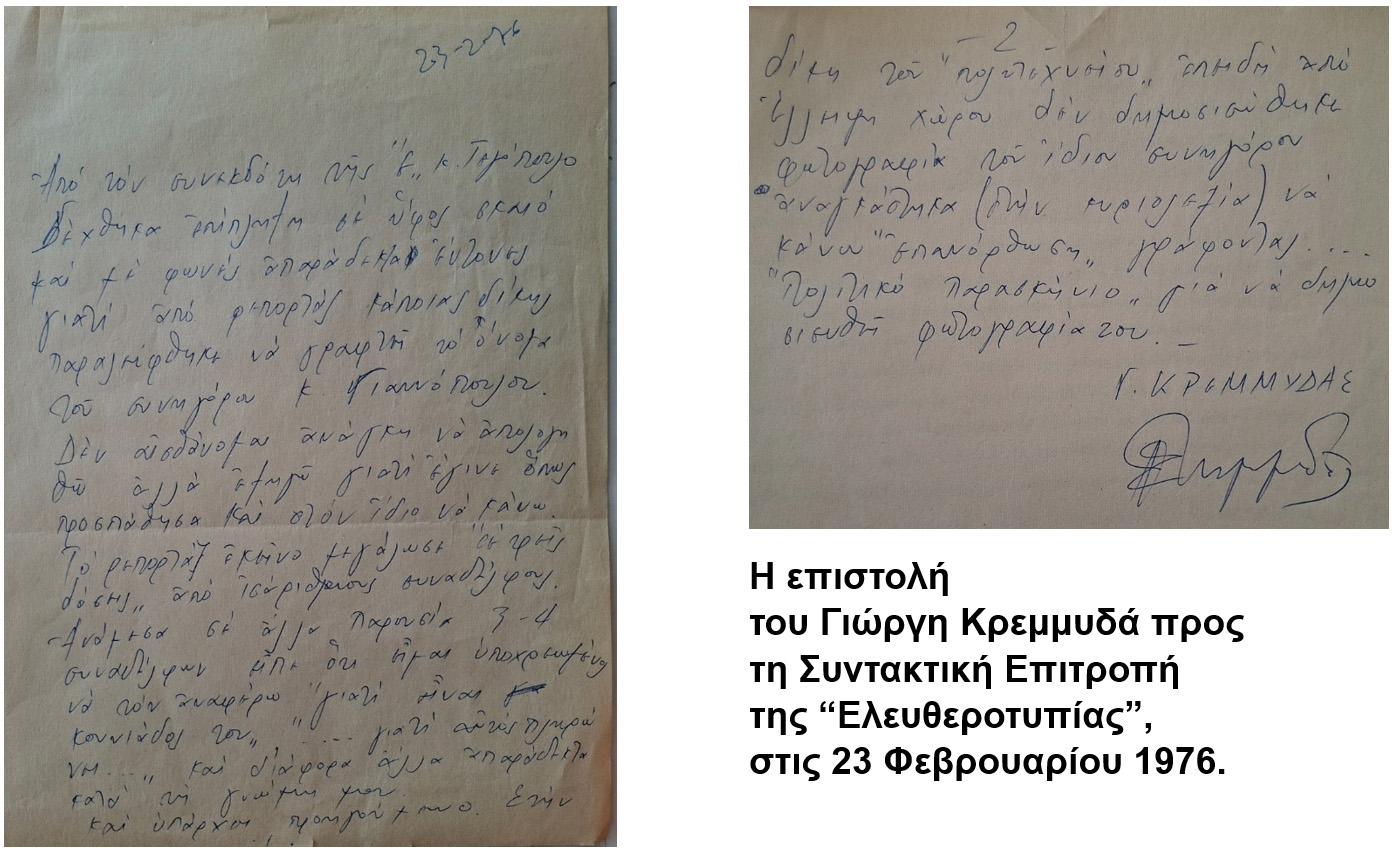 23-2-76
Ἀπό τόν συνεκδότη τῆς "Ε„ κ. Τεγόπουλο
δέχθηκα ἐπίπληξη σέ ὕφος σκαιό
καί μέ φωνές ἀπαράδεκτα ἔντονες
γιατί ἀπό ρεπορτάζ κάποιας δίκης
παραλείφθηκε νά γραφτῆ τό ὄνομα
τοῦ συνηγόρου κ. Γιαννόπουλου.
Δέν αἰσθάνομαι ἀνάγκη νά ἀπολογη
θῶ ἀλλά ἐξηγῶ γιατί ἔγινε ὅπως
προσπάθησα καί στόν ἴδιο νά κάνω.
Τό ρεπορτάζ ἐκεῖνο μεγάλωσε "σέ τρεῖς
δόσεις„ ἀπό ἰσάριθμους συναδέλφους.
Ἀνάμεσα σέ ἄλλα παρουσία 3-4
συναδέλφων εἶπε ὅτι εἶμαι ὑποχρεωμένος
νά τόν ἀναφέρω "γιατί εἶναι
κουνιάδος του„ ".... γιατί αὐτός πληρώ
νει...„ καί διάφορα ἄλλα ἀπαράδεκτα
κατά τή γνώμη μου.
Καί ὑπάρχει προηγούμενο. Στήν
- 2 -
δίκη τοῦ "πολυτεχνείου„ ἐπειδή ἀπό
ἔλλειψη χώρου δέν δημοσιεύθηκε
φωτογραφία τοῦ ἴδιου συνηγόρου
ἀναγκάστηκα (στήν κυριολεξία) νά
κάνω "ἐπανόρθωση„ γράφοντας....
"Πολιτικό παρασκήνιο„ γιά νά δημο
σιευθῆ φωτογραφία του. _
Γ. ΚΡΕΜΜΥΔΑΣ
Η επιστολή
του Γιώργη Κρεμμυδά προς
τη Συντακτική Επιτροπή
της “Ελευθεροτυπίας”,
στις 23 Φεβρουαρίου 1976.